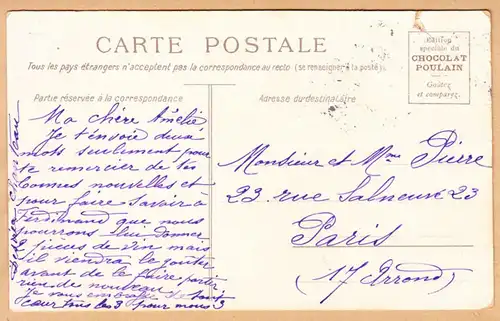 CARTE POSTALE
Tous les pays étrangers n'acceptent pas la correspondance au recto (se renseigner à la poste)
Edition
spéciale du
CHOCOLAT
POULAIN
Goûtez
et comparez.
Partie réservée à la correspondance
Adresse du destinataire
Ma chère Amélie
Je t'envoie deux
mots seulement pour
te remercier de tes
bonnes nouvelles et
pour faire savoir à
Ferdinand que nous
pourrons lui donner
2 pièces de vin mais
il viendra le goûter
avant de la faire partir
rien de nouveau
Je vous embrasse de tout
cœur tous les 3 pour nous 3
Monsieur et Mme Pierre
23 rue Salneuve 23
Paris
(17 Arrond)